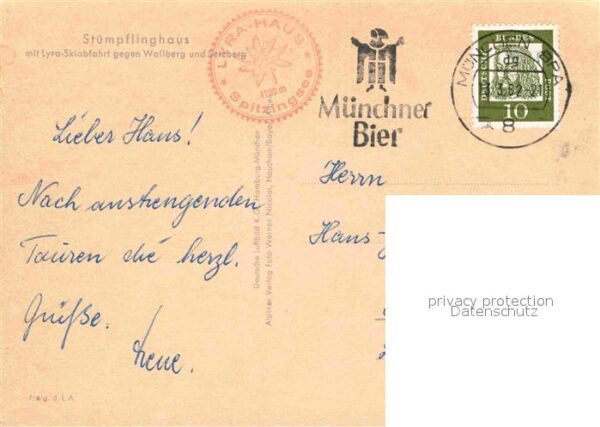 Stümpflinghaus
mit Lyra-Skiabfahrt gegen Wallberg und Setzberg
LYRA-HAUS
1200 m
Spitzingsee
Münchner
Bier
MÜNCHEN BPA
dg
3.62.-21
8
DEUTSCHE BUNDESPOST
10
Lieber Hans!
Nach anstrengenden
Touren die herzl.
Grüße.
Irene.
Herrn
Hans-
Deutsche Luftbild K.G. Hamburg-München
Alpiner Verlag Foto Werner Nicolai, Hausham/Bayern
Freig. d. L.A.
privacy protection
Datenschutz